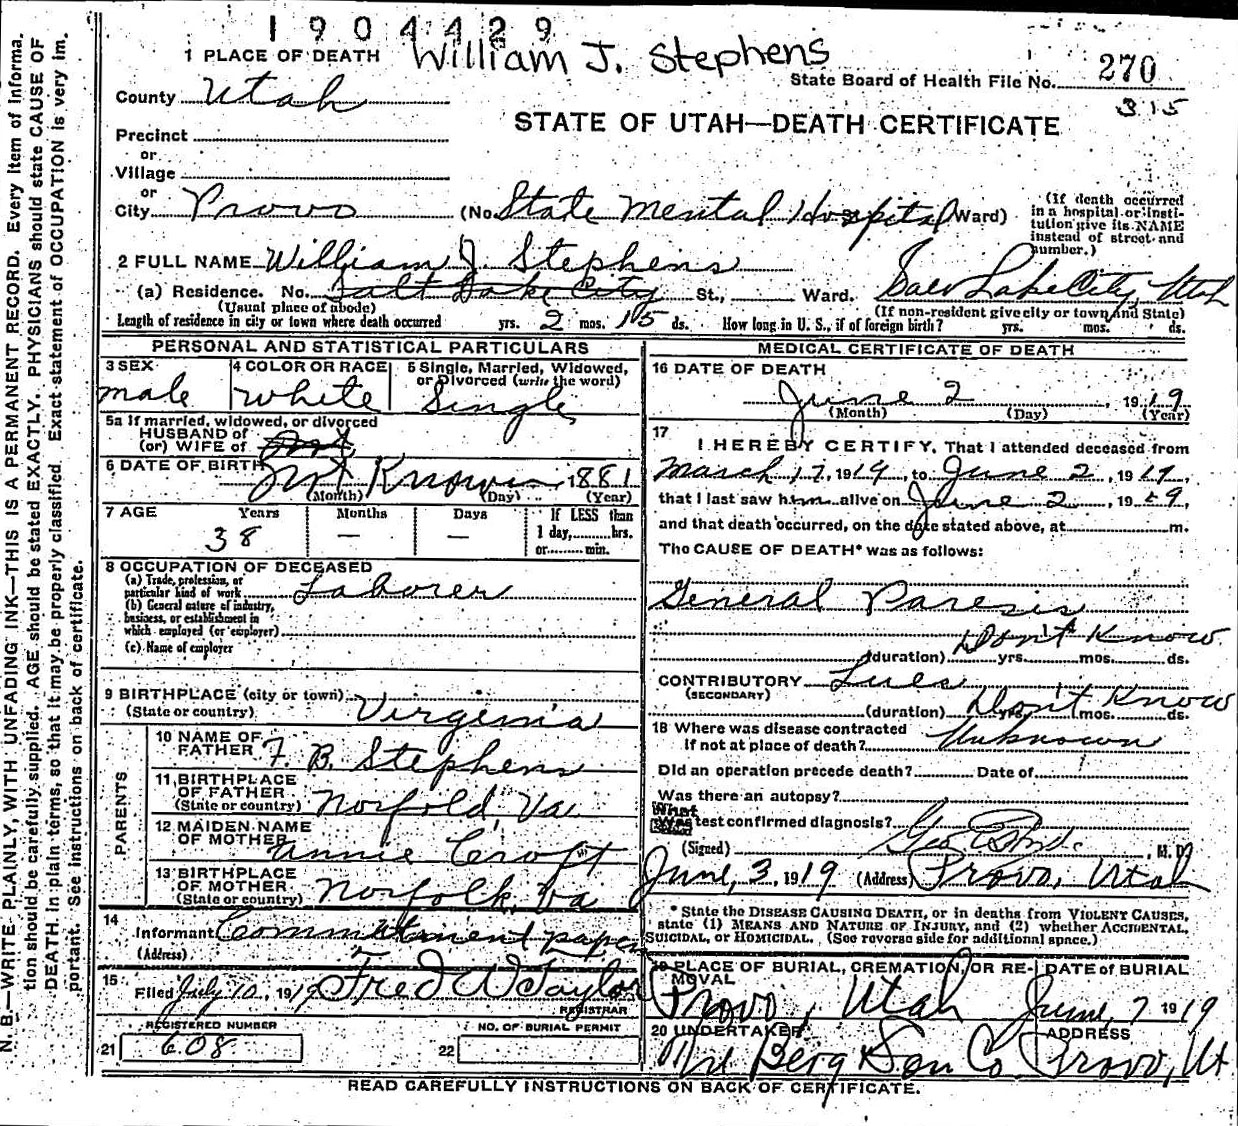 1904429
1 PLACE OF DEATH William J. Stephens
State Board of Health File No. 270
315
County Utah
STATE OF UTAH—DEATH CERTIFICATE
Precinct
or
Village
or
City Provo (No. State Mental Hospital Ward)
(If death occurred in a hospital or institution give its NAME instead of street and number.)
2 FULL NAME William J. Stephens
(a) Residence. No. Salt Lake City St., Ward. Salt Lake City, Utah
(Usual place of abode) (If non-resident give city or town and State)
Length of residence in city or town where death occurred yrs. 2 mos. 15 ds. How long in U. S., if of foreign birth? yrs. mos. ds.
PERSONAL AND STATISTICAL PARTICULARS
3 SEX male
4 COLOR OR RACE white
5 Single, Married, Widowed, or Divorced (write the word) Single
5a If married, widowed, or divorced
HUSBAND of
(or) WIFE of
6 DATE OF BIRTH Not Known 1881
(Month) (Day) (Year)
7 AGE Years Months Days If LESS than
38 — — 1 day,........hrs.
or.........min.
8 OCCUPATION OF DECEASED
(a) Trade, profession, or
particular kind of work Laborer
(b) General nature of industry,
business, or establishment in
which employed (or employer)
(c) Name of employer
9 BIRTHPLACE (city or town)
(State or country) Virginia
PARENTS
10 NAME OF
FATHER F. B. Stephens
11 BIRTHPLACE
OF FATHER
(State or country) Norfold, Va
12 MAIDEN NAME
OF MOTHER Annie Croft
13 BIRTHPLACE
OF MOTHER
(State or country) Norfolk, Va
14
Informant Committment paper
(Address)
15 Filed July 10, 1919 Fred W Taylor
REGISTRAR
REGISTERED NUMBER NO. OF BURIAL PERMIT
21 608 22
MEDICAL CERTIFICATE OF DEATH
16 DATE OF DEATH
June 2, 1919
(Month) (Day) (Year)
17
I HEREBY CERTIFY, That I attended deceased from
March 17, 1919, to June 2, 1919,
that I last saw him alive on June 2, 1919,
and that death occurred, on the date stated above, at m.
The CAUSE OF DEATH* was as follows:
General Paresis
Don't Know
(duration) yrs. mos. ds.
CONTRIBUTORY Lues
(SECONDARY) Don't Know
(duration) yrs. mos. ds.
18 Where was disease contracted
if not at place of death? Unknown
Did an operation precede death? Date of
Was there an autopsy?
What test confirmed diagnosis?
(Signed) , M. D.
June, 3, 1919 (Address) Provo, Utah
* State the DISEASE CAUSING DEATH, or in deaths from VIOLENT CAUSES,
state (1) MEANS AND NATURE OF INJURY, and (2) whether ACCIDENTAL,
SUICIDAL, or HOMICIDAL. (See reverse side for additional space.)
19 PLACE OF BURIAL, CREMATION, OR RE-
MOVAL Provo, Utah
DATE of BURIAL
June, 7 1919
20 UNDERTAKER Berg Son Co
ADDRESS Provo, Ut
READ CAREFULLY INSTRUCTIONS ON BACK OF CERTIFICATE.
N. B.—WRITE PLAINLY, WITH UNFADING INK—THIS IS A PERMANENT RECORD. Every item of informa-
tion should be carefully supplied. AGE should be stated EXACTLY. PHYSICIANS should state CAUSE OF
DEATH in plain terms, so that it may be properly classified. Exact statement of OCCUPATION is very im-
portant. See instructions on back of certificate.